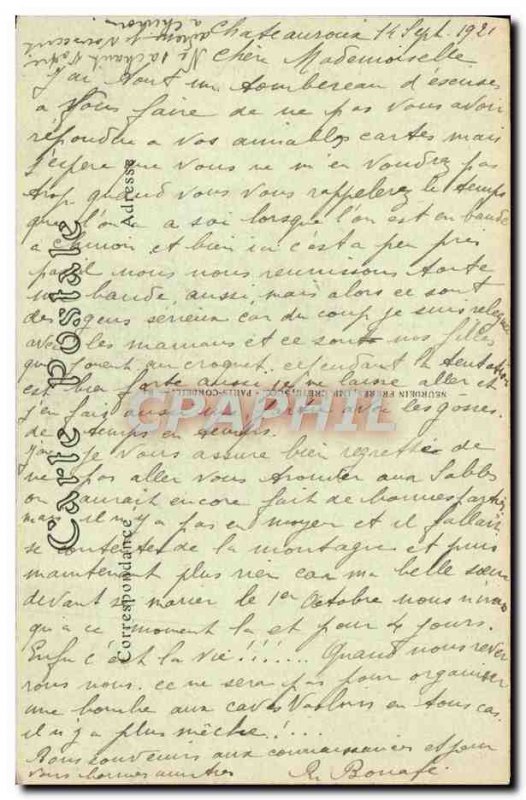 Chateauroux 14 Sept. 1921
Chère Mademoiselle
J'ai tout un tombereau d'escuses
a vous faire de ne pas vous avoir
répondre a vos aimables cartes mais
J'espère que vous ne m'en voudrez pas
trop quand vous vous rappelerez le temps
que l'on a a soi lorsque l'on est en bande
a Chinon et bien ici c'est a peu près
pareil nous nous reunissons toute
une bande aussi, mais alors ce sont
des gens serieux car du coup je suis
avec les mamans et ce sont nos filles
qui jouent au croquet cependant la tentation
est bien forte aussi je me laisse aller et
j'en fais aussi une partie avec les gosses
de temps en temps.
J'ai je vous assure bien regretté de
ne pas aller vous trouver aux Sables
on aurait encore fait de bonnes parties
mais il n'y a pas en moyen et il fallait
se contenter de la montagne et puis
maintenant plus rien car ma belle soeur
devant se marier le 1er Octobre nous n'irons
qu'a ce moment la et pour 4 jours.
Enfin c'est la vie !!!..... Quand nous rever
rons nous. ce ne sera pas pour organiser
une bombe aux caves en tous cas.
il n'y a plus mèche !...
Bons souvenirs aux connaissances et pour
vous bonnes amitiés
Carte postale
Adresse
Correspondance
NEURDEIN FRÈRES
PARIS-CORBEIL
CPAPHIL